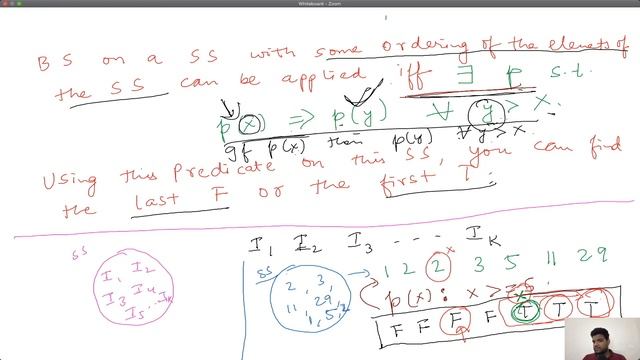 Whiteboard - Zoom
BS on a SS with some ordering of the elements of
the SS can be applied iff ∃ p s.t.
p(x) ⇒ p(y) ∀ y > x.
If p(x) then p(y) ∀ y > x.
Using this predicate on this SS, you can find
the last F or the first T.
I1 I2 I3 - - - - IK
SS
I1 I2
I3 I4 ..IK
I5
SS
2, 3,
11, 29
1, 5, 2
1 2 2 3 5 11 29
p(x) : x >
F F F F T T T